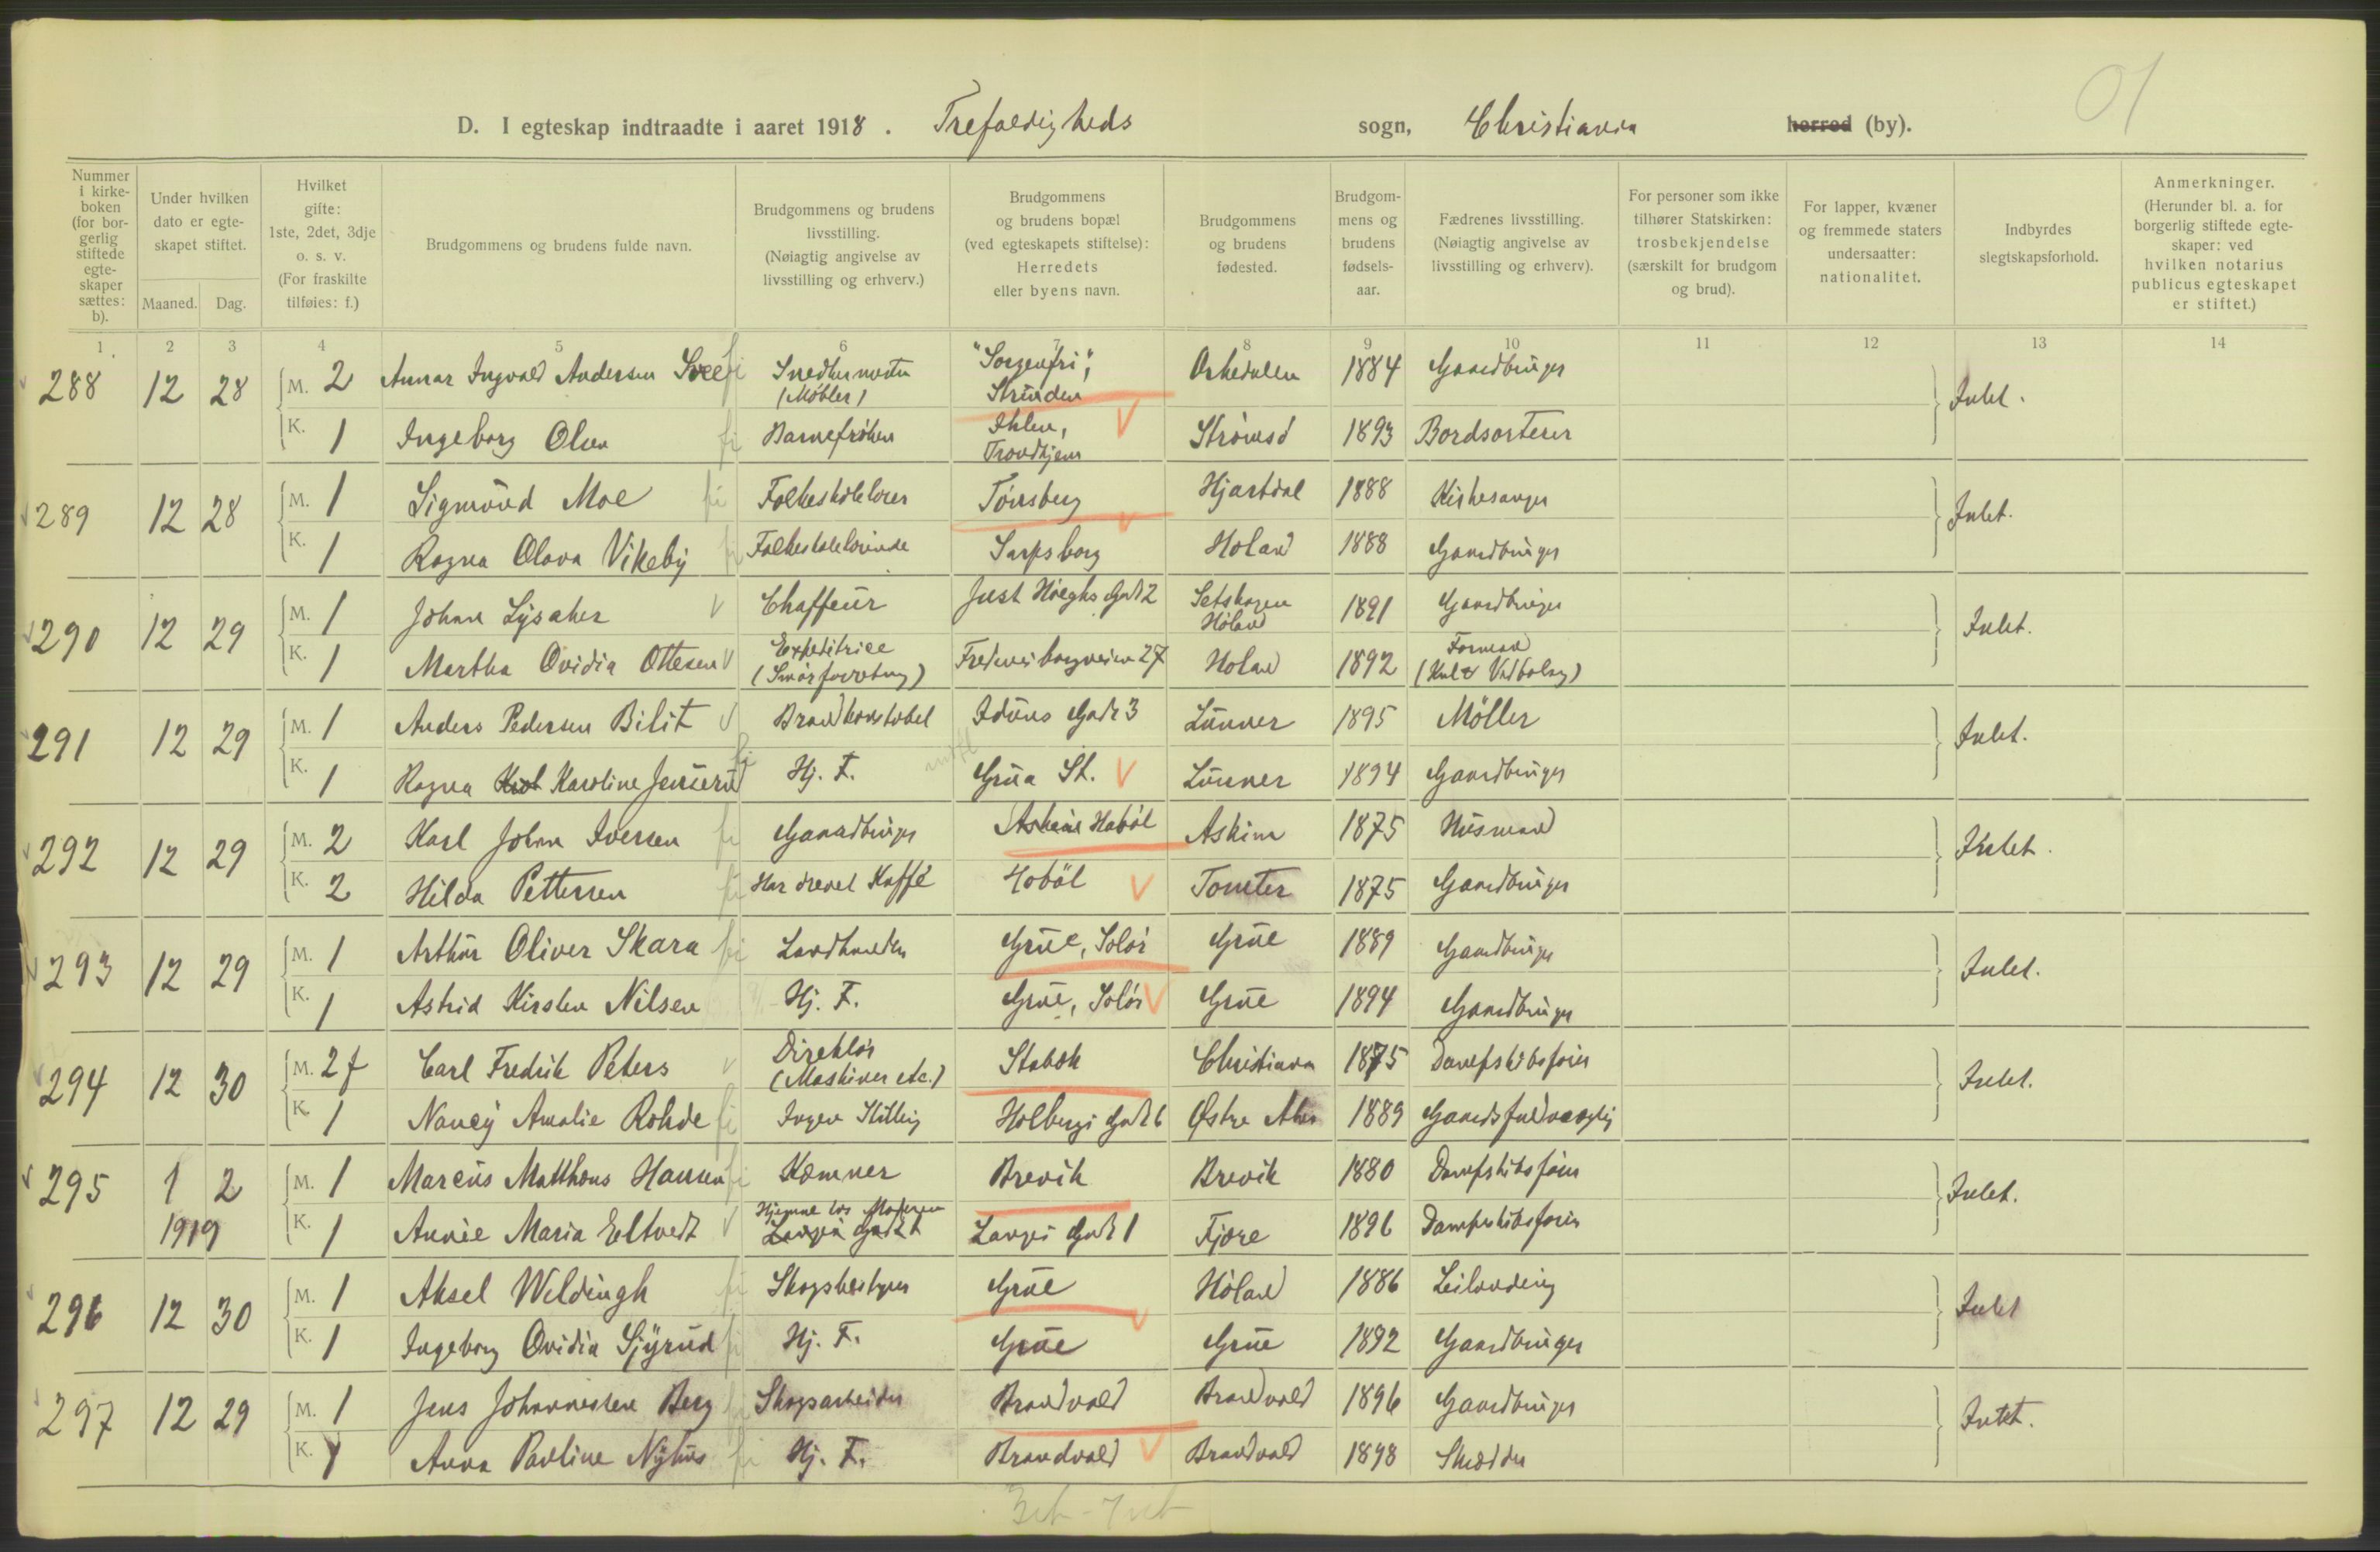 D. I egteskap indtraadte i aaret 1918. Trefoldigheds sogn, Christiania herred (by).
Nummer i kirkeboken (for borgerlig stiftede egteskaper sættes: b).
Under hvilken dato er egteskapet stiftet.
Maaned. Dag.
Hvilket gifte: 1ste, 2det, 3dje o. s. v. (For fraskilte tilføies: f.)
Brudgommens og brudens fulde navn.
Brudgommens og brudens livsstilling. (Nøiagtig angivelse av livsstilling og erhverv.)
Brudgommens og brudens bopæl (ved egteskapets stiftelse): Herredets eller byens navn.
Brudgommens og brudens fødested.
Brudgommens og brudens fødselsaar.
Fædrenes livsstilling. (Nøiagtig angivelse av livsstilling og erhverv).
For personer som ikke tilhører Statskirken: trosbekjendelse (særskilt for brudgom og brud).
For lapper, kvæner og fremmede staters undersaatter: nationalitet.
Indbyrdes slegtskapsforhold.
Anmerkninger. (Herunder bl. a. for borgerlig stiftede egteskaper: ved hvilken notarius publicus egteskapet er stiftet.)
1 2 3 4 5 6 7 8 9 10 11 12 13 14
288 12 28 M. 2 Annar Ingvald Andersen Svee Snedkermester (Møbler) "Sorgenfri", Strinden Orkedalen 1884 Gaardbruger Intet.
K. 1 Ingeborg Olsen Barnefrøken Ihlen, Trondhjem Strømsd 1893 Bordsorterer
289 12 28 M. 1 Sigmund Moe Folkeskolelærer Tønsberg Hjartdal 1888 Kirkesanger Intet.
K. 1 Ragna Olava Vikeby Folkeskolelærinde Sarpsborg Høland 1888 Gaardbruger
290 12 29 M. 1 Johan Lysaker Chaffeur Just Høeghs Gade 2 Setskogen Høland 1891 Gaardbruger Intet.
K. 1 Martha Ovidia Ottesen Expeditrice (Smørforretning) Fredensborgveien 27 Høland 1892 Formand (Kul & Vedbolag)
291 12 29 M. 1 Anders Pedersen Bilit Brandkonstabel Iduns Gade 3 Lunner 1895 Møller Intet.
K. 1 Ragna Karoline Jensrud Hj. F. Grua St. Lunner 1894 Gaardbruger
292 12 29 M. 2 Karl Johan Iversen Gaardbruger Askim Hobøl Askim 1875 Husmand Intet.
K. 2 Hilda Pettersen Har drevet Kaffé Hobøl Tomter 1875 Gaardbruger
293 12 29 M. 1 Arthur Oliver Skara Landhandler Grue, Solør Grue 1889 Gaardbruger Intet.
K. 1 Astrid Kirsten Nilsen Hj. F. Grue, Solør Grue 1894 Gaardbruger
294 12 30 M. 2 f Carl Fredrik Peters Direktør (Maskiner etc.) Stabæk Christiania 1875 Dampskibsfører Intet.
K. 1 Nancy Amalie Rohde Ingen Stilling Holbergs Gade 6 Østre Aker 1889 Gaardsfuldmægtig
295 1 2 1919 M. 1 Marcus Matthæus Hansen Kæmner Brevik Brevik 1880 Dampskibsfører Intet.
K. 1 Annie Maria Eltvedt Hjemme hos Moderen Langes Gade 1 Langes Gade 1 Fjære 1896 Dampskibsfører
296 12 30 M. 1 Aksel Weldingh Skogsbestyrer Grue Høland 1886 Leilænding Intet
K. 1 Ingeborg Ovidia Sjyrud Hj. F. Grue Grue 1892 Gaardbruger
297 12 29 M. 1 Jens Johannessen Berg Skogsarbeider Brandvald Brandvold 1896 Gaardbruger Intet.
K. 1 Anna Pauline Nyhus Hj. F. Brandvold Brandvold 1898 Skrædder